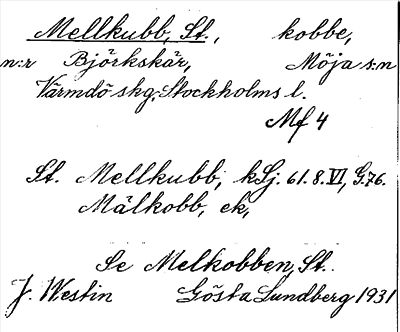 Mellkubb, St., kobbe,
n:r Björkskär, Möja s:n
Värmdö skg, Stockholms l.
Mf 4
St. Mellkubb, kSj. 61.8.VI, G.76.
Mälkobb, ek,
Se Melkobben, St.
J. Westin Gösta Lundberg 1931